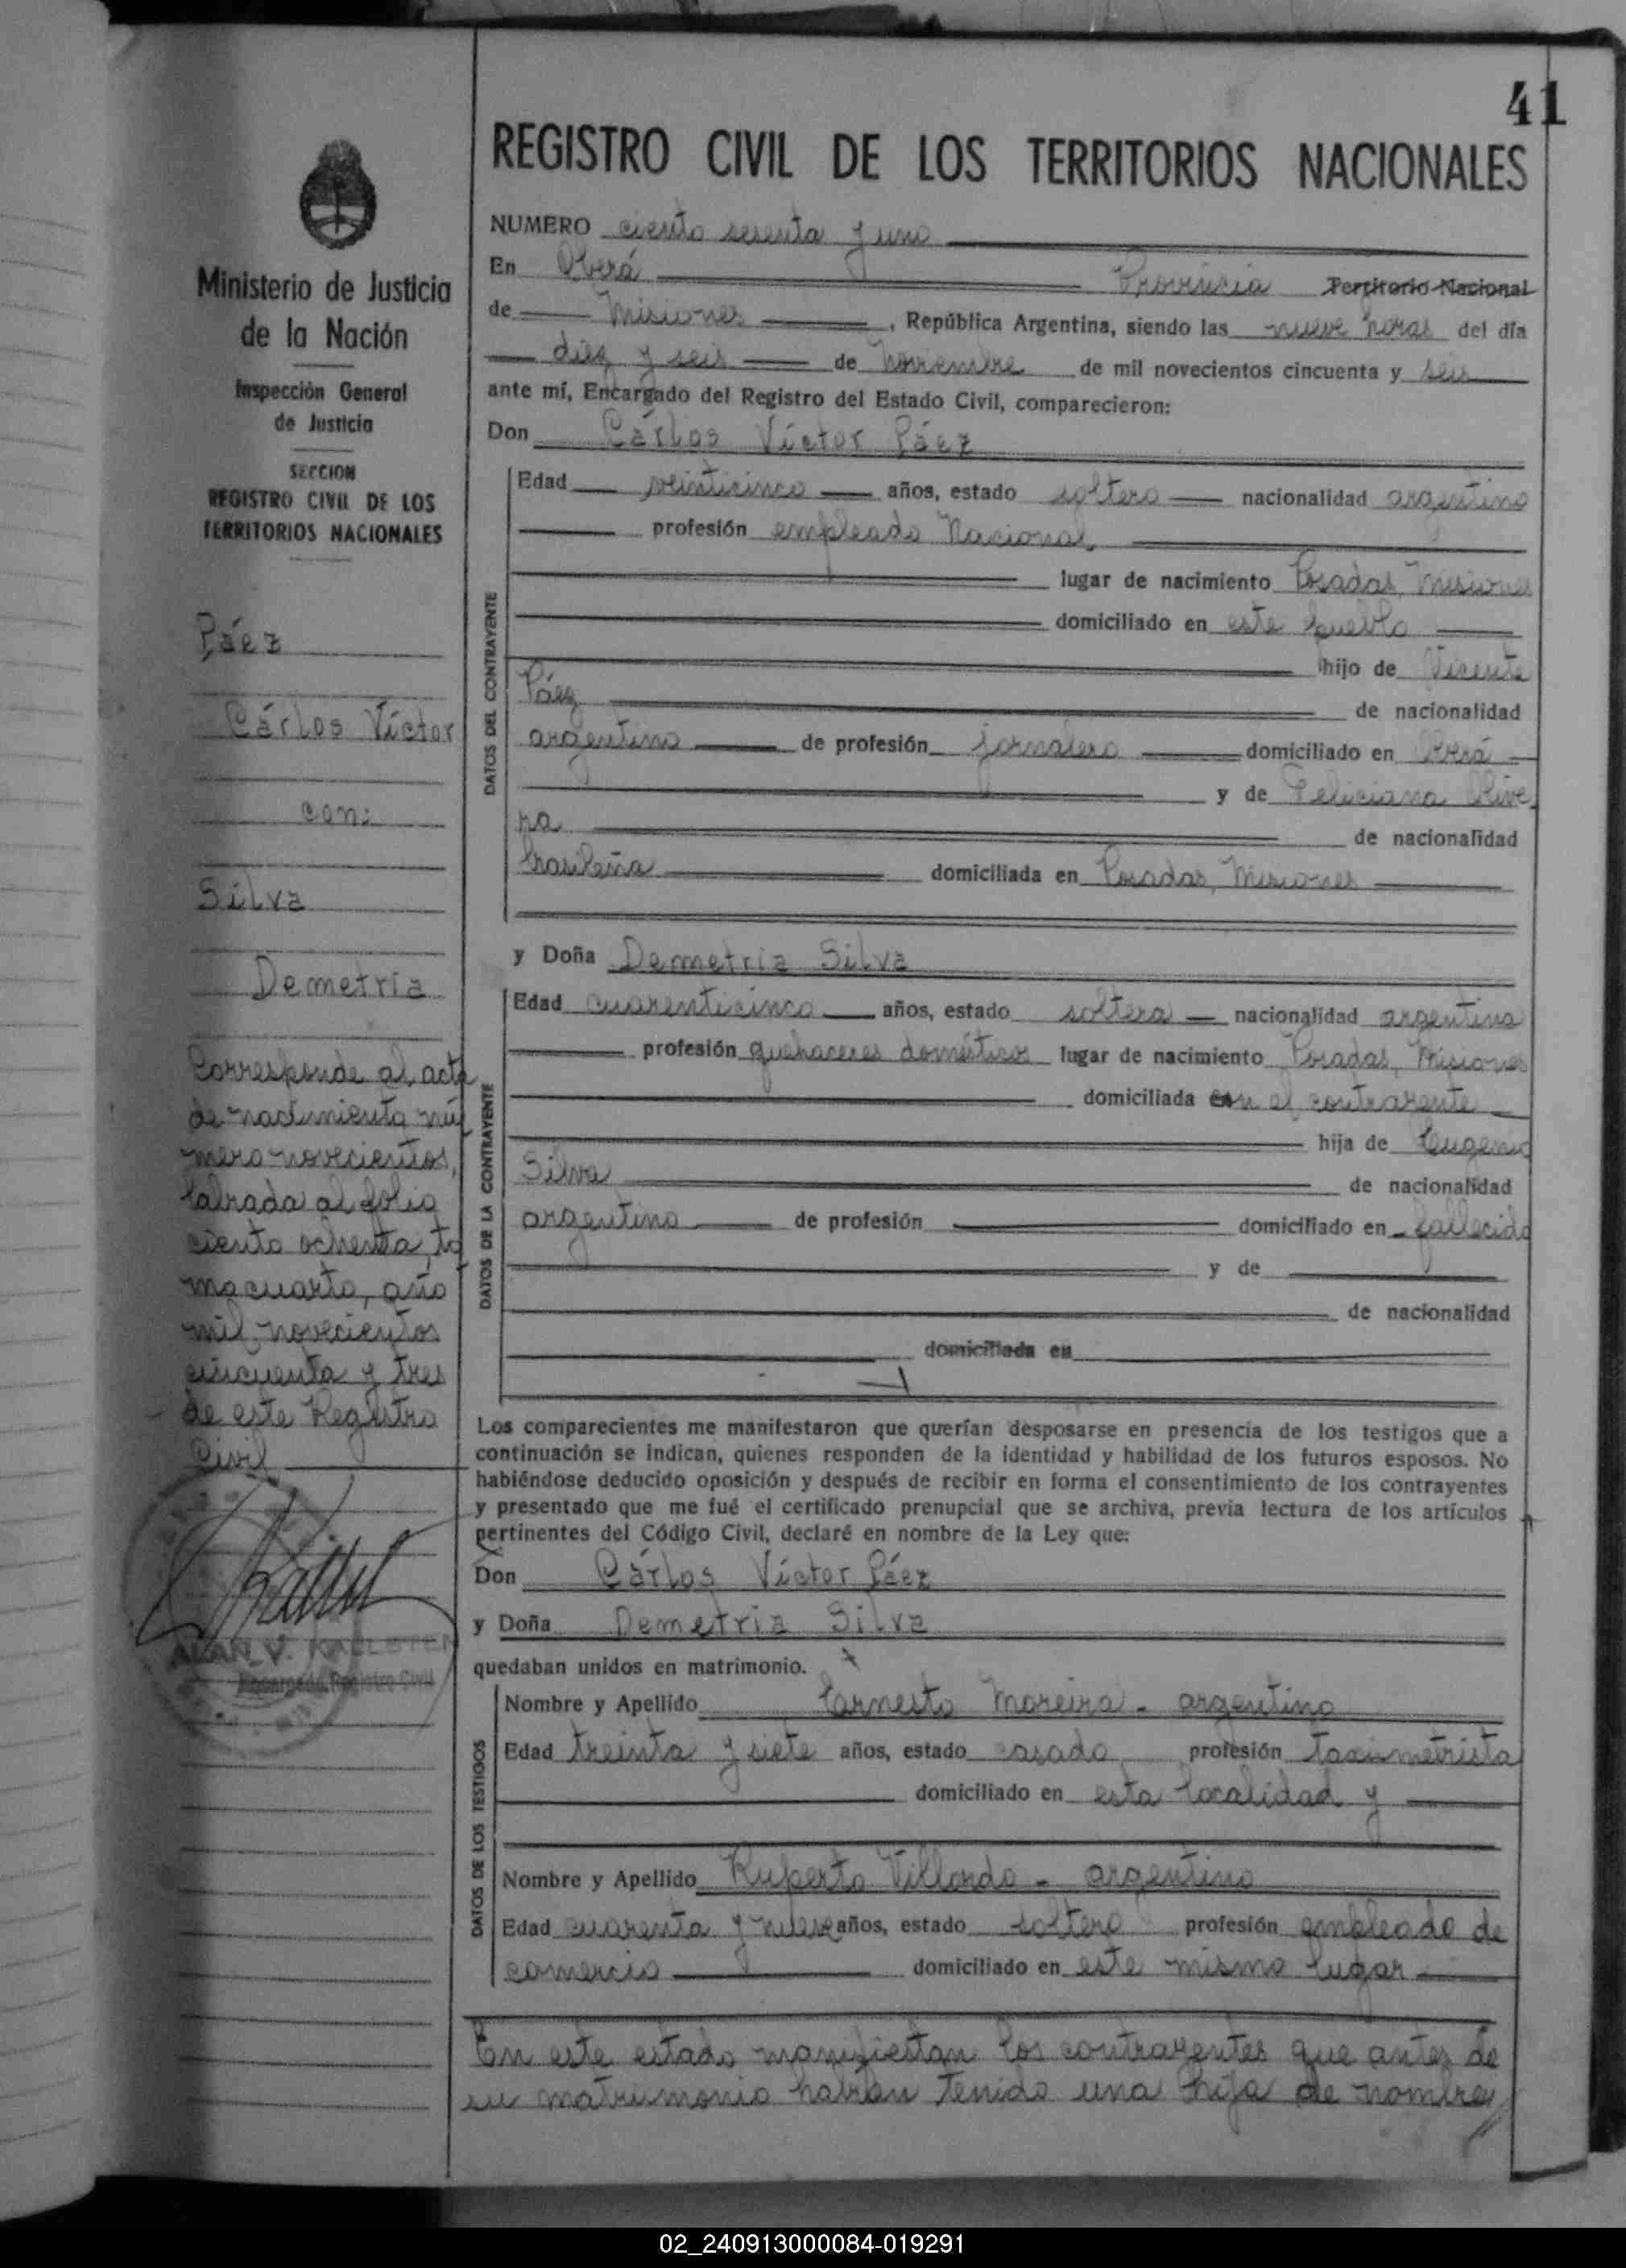 41
REGISTRO CIVIL DE LOS TERRITORIOS NACIONALES
Ministerio de Justicia
de la Nación
Inspección General
de Justicia
SECCION
REGISTRO CIVIL DE LOS
TERRITORIOS NACIONALES
Páez
Cárlos Víctor
con:
Silva
Demetria
Corresponde al acta
de nacimiento nú
mero novecientos,
labrada al folio
ciento ochenta, to
mo cuarto, año
mil novecientos
cincuenta y tres
de este Registro
Civil
ALAN V. KALLSTEN
Encargado Registro Civil
NUMERO ciento sesenta y uno
En Oberá Provincia Territorio Nacional
de Misiones, República Argentina, siendo las nueve horas del día
diez y seis de noviembre de mil novecientos cincuenta y seis
ante mí, Encargado del Registro del Estado Civil, comparecieron:
Don Cárlos Víctor Páez
DATOS DEL CONTRAYENTE
Edad veinticinco años, estado soltero nacionalidad argentino
profesión empleado Nacional
lugar de nacimiento Posadas, Misiones
domiciliado en este pueblo
hijo de Vicente
Páez de nacionalidad
argentino de profesión jornalero domiciliado en Oberá
y de Feliciana Rive
ra de nacionalidad
brasileña domiciliada en Posadas, Misiones
y Doña Demetria Silva
DATOS DE LA CONTRAYENTE
Edad cuarenticinco años, estado soltera nacionalidad argentina
profesión quehaceres domésticos lugar de nacimiento Posadas, Misiones
domiciliada con el contrayente
hija de Eugenio
Silva de nacionalidad
argentino de profesión domiciliado en fallecido
y de
de nacionalidad
domiciliada en
Los comparecientes me manifestaron que querían desposarse en presencia de los testigos que a
continuación se indican, quienes responden de la identidad y habilidad de los futuros esposos. No
habiéndose deducido oposición y después de recibir en forma el consentimiento de los contrayentes
y presentado que me fué el certificado prenupcial que se archiva, previa lectura de los artículos
pertinentes del Código Civil, declaré en nombre de la Ley que:
Don Cárlos Víctor Páez
y Doña Demetria Silva
quedaban unidos en matrimonio.
DATOS DE LOS TESTIGOS
Nombre y Apellido Ernesto Moreira - argentino
Edad treinta y siete años, estado casado profesión taximetrista
domiciliado en esta localidad y
Nombre y Apellido Ruperto Villordo - argentino
Edad cuarenta y nueve años, estado soltero profesión empleado de
comercio domiciliado en este mismo lugar
En este estado manifiestan los contrayentes que antes de
su matrimonio habían tenido una hija de nombre
02_240913000084-019291